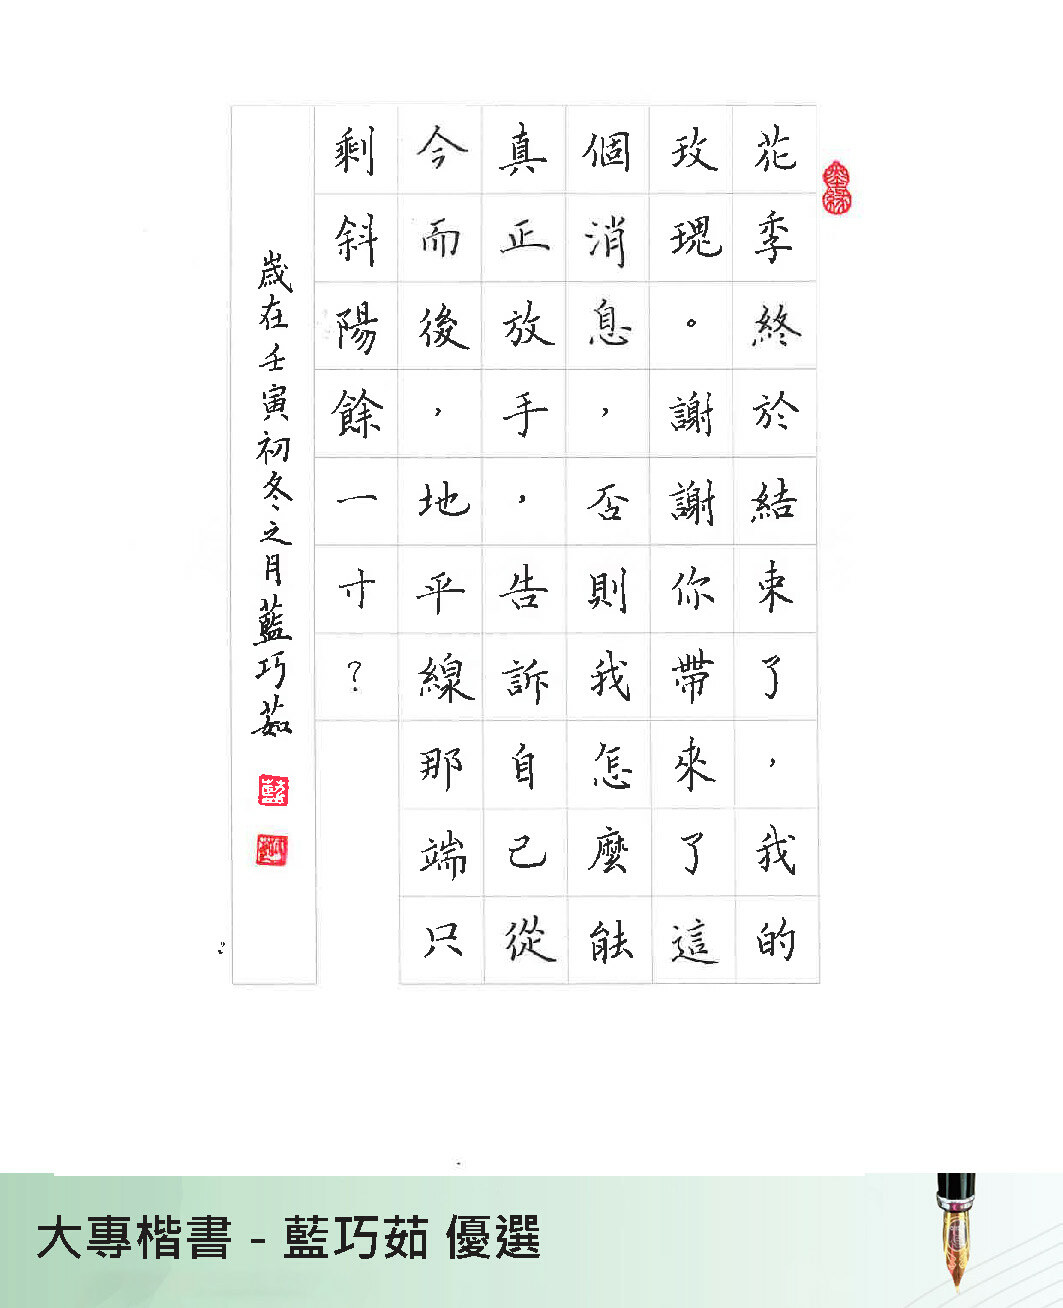 花季終於結束了，我的
玫瑰。謝謝你帶來了這
個消息，否則我怎麼能
真正放手，告訴自己從
今而後，地平線那端只
剩斜陽餘一寸？
歲在壬寅初冬之月藍巧茹
大專楷書 - 藍巧茹 優選